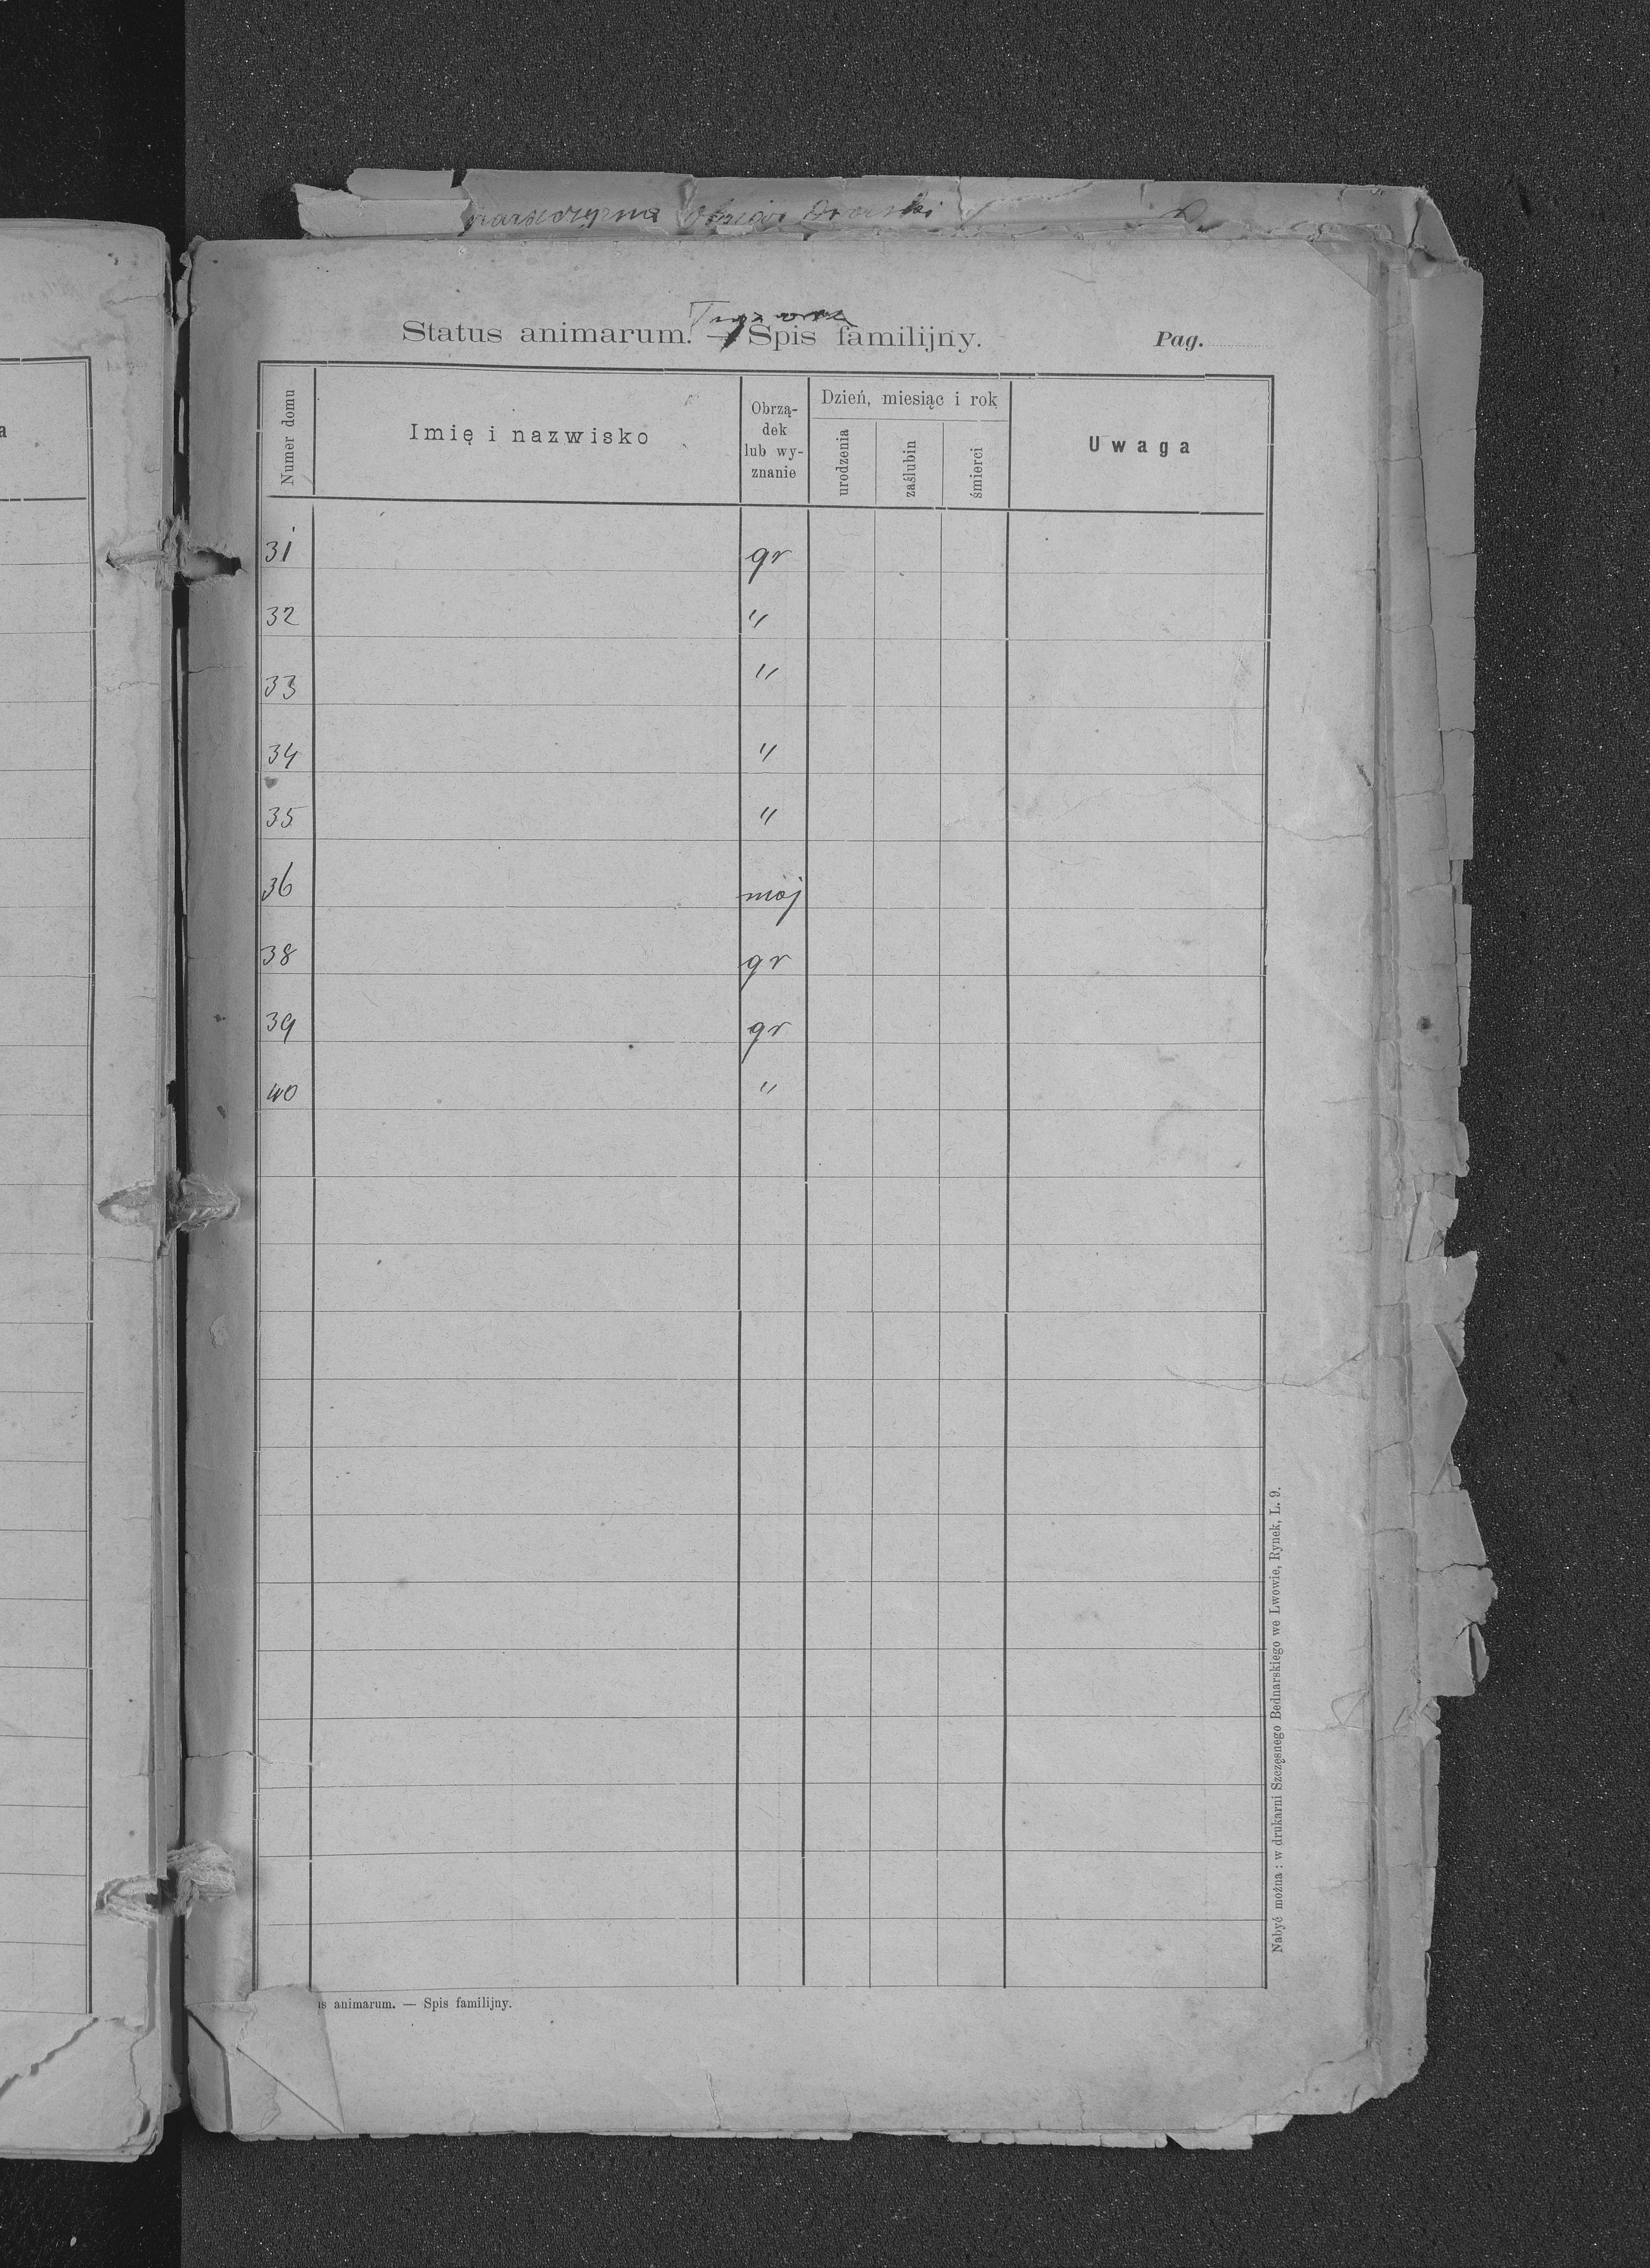 Status animarum. — Spis familijny.
Pag.
Numer domu
Imię i nazwisko
Obrzą-
dek
lub wy-
znanie
Dzień, miesiąc i rok
urodzenia
zaślubin
śmierci
Uwaga
31 gr
32 "
33 "
34 "
35 "
36 moj
38 gr
39 gr
40 "
Nabyć można : w drukarni Szczęsnego Bednarskiego we Lwowie, Rynek, L. 9.
animarum. — Spis familijny.
a